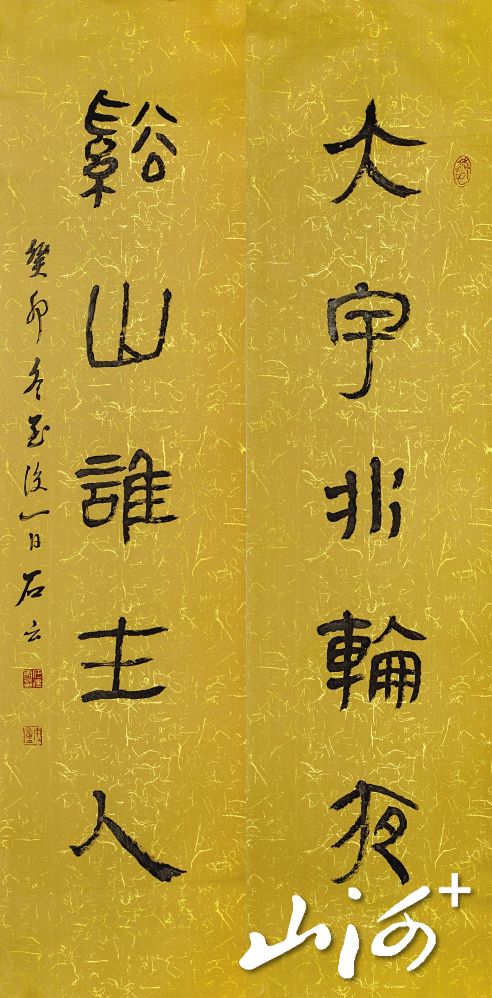 大宇冰輪夜
谿山誰主人
癸卯冬至後一日石云
山河+